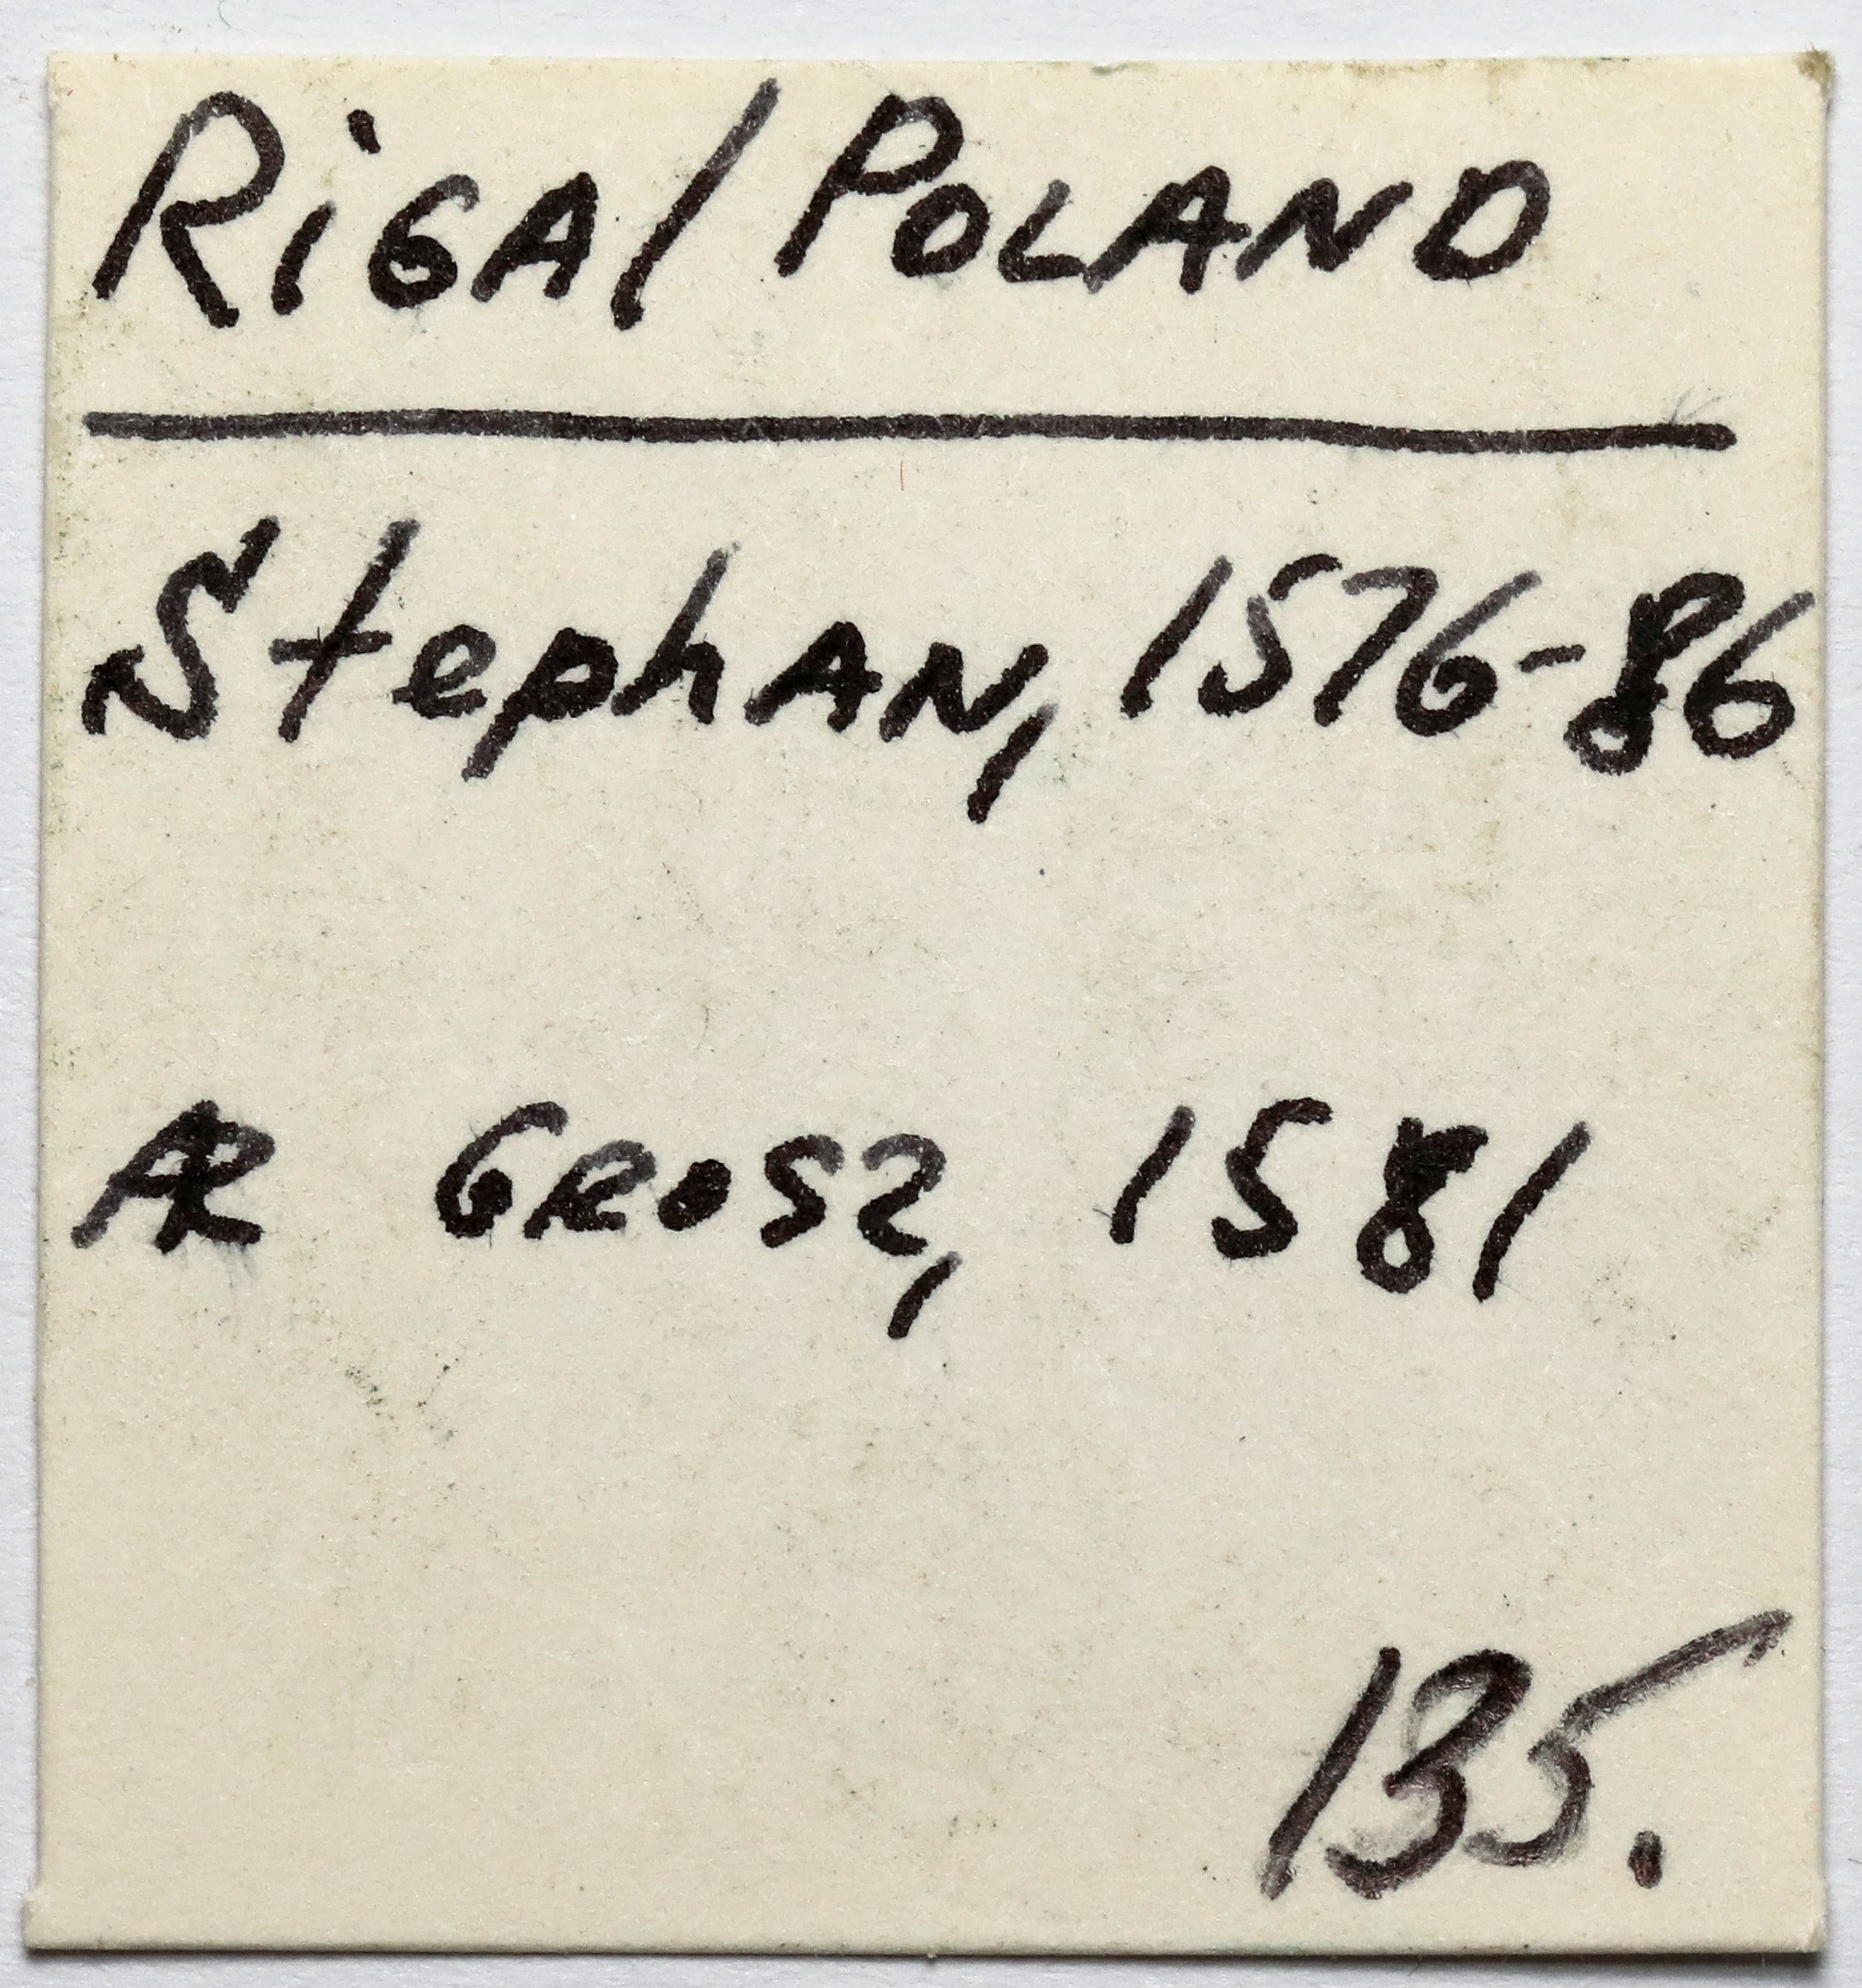 RiGA/POLAND
StephAN, 1576-86
AR GROSZ, 1581
135.